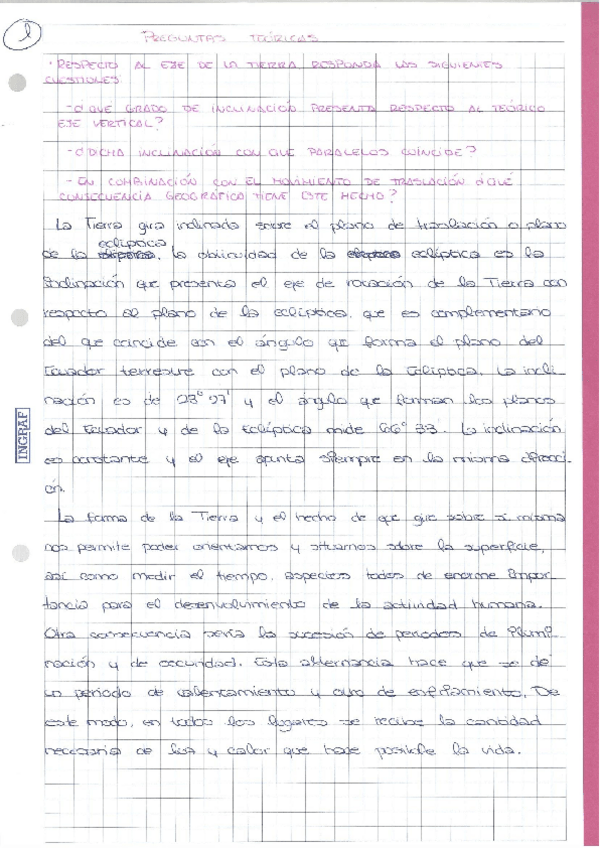 1
PREGUNTAS TEÓRICAS
· RESPECTO AL EJE DE LA TIERRA RESPONDA LAS SIGUIENTES
CUESTIONES
- ¿QUE GRADO DE INCLINACIÓN PRESENTA RESPECTO AL TEÓRICO
EJE VERTICAL?
- ¿DICHA INCLINACIÓN CON QUE PARALELOS COINCIDE?
- EN COMBINACIÓN CON EL MOVIMIENTO DE TRASLACIÓN ¿QUÉ
CONSECUENCIA GEOGRÁFICA TIENE ESTE HECHO?
La Tierra gira inclinada sobre el plano de traslación o plano
de la eclíptica. La oblicuidad de la eclíptica es la
inclinación que presenta el eje de rotación de la Tierra con
respecto al plano de la eclíptica, que es complementario
del que coincide con el ángulo que forma el plano del
Ecuador terrestre con el plano de la Eclíptica. La incli
nación es de 23° 27' y el ángulo que forman los planos
del Ecuador y de la Eclíptica mide 66° 33. La inclinación
es constante y el eje apunta siempre en la misma direcci
ón.
La forma de la Tierra y el hecho de que gire sobre si misma
nos permite poder orientarnos y situarnos sobre la superficie,
así como medir el tiempo, aspectos todos de enorme impor
tancia para el desenvolvimiento de la actividad humana.
Otra consecuencia sería la sucesión de periodos de ilumi
nación y de oscuridad. Esta alternancia hace que se dé
un periodo de calentamiento y otro de enfriamiento. De
este modo, en todos los lugares se recibe la cantidad
necesaria de luz y calor que hace posible la vida.
INGRAF